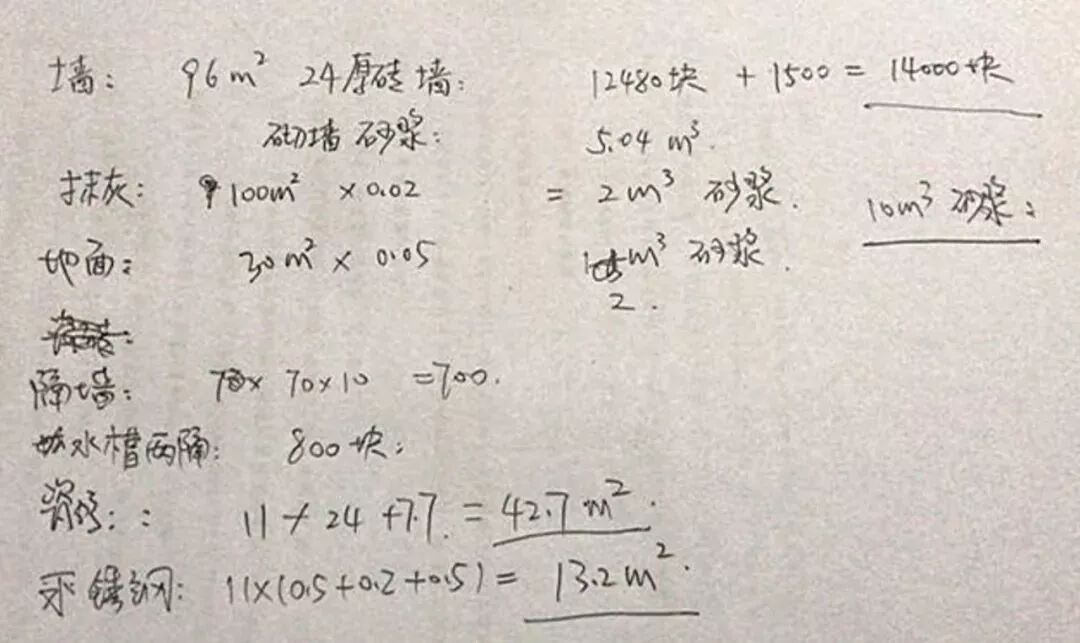 墙: 96m² 24厚砖墙: 12480块 + 1500 = 14000块
砌墙砂浆: 5.04 m³.
抹灰: 100m² ×0.02 = 2m³ 砂浆. 10m³ 砂浆:
地面: 30m² × 0.05 m³ 砂浆.
2.
隔墙: 70×10 =700.
水槽两隔: 800块;
瓷砖: : 11 + 24 +7.7. = 42.7m².
不锈钢: 11×(0.5+0.2+0.5) = 13.2m².